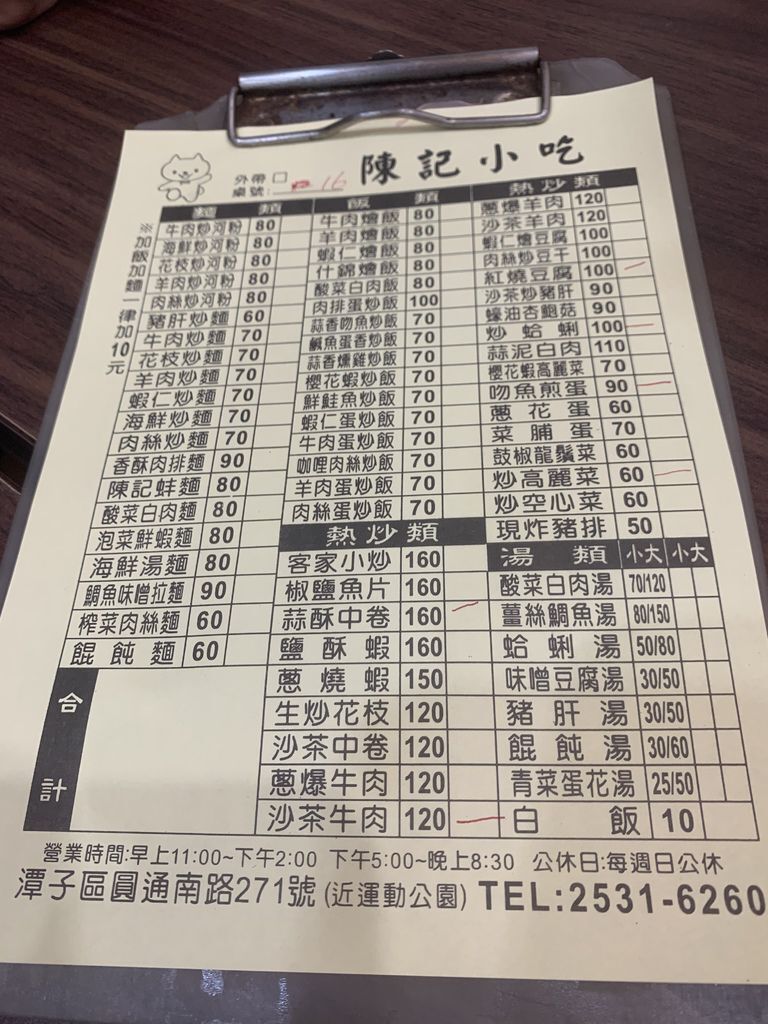 陳記小吃
外帶□
桌號: 16
※加飯加麵一律加10元
麵 類
牛肉炒河粉 80
海鮮炒河粉 80
花枝炒河粉 80
羊肉炒河粉 80
肉絲炒河粉 80
豬肝炒麵 60
牛肉炒麵 70
花枝炒麵 70
羊肉炒麵 70
蝦仁炒麵 70
海鮮炒麵 70
肉絲炒麵 70
香酥肉排麵 90
陳記蚌麵 80
酸菜白肉麵 80
泡菜鮮蝦麵 80
海鮮湯麵 80
鯛魚味噌拉麵 90
榨菜肉絲麵 60
餛飩麵 60
合計
飯 類
牛肉燴飯 80
羊肉燴飯 80
蝦仁燴飯 80
什錦燴飯 80
酸菜白肉飯 80
肉排蛋炒飯 100
蒜香吻魚炒飯 70
鹹魚蛋香炒飯 70
蒜香燻雞炒飯 70
櫻花蝦炒飯 70
鮮鮭魚炒飯 70
蝦仁蛋炒飯 70
牛肉蛋炒飯 70
咖哩肉絲炒飯 70
羊肉蛋炒飯 70
肉絲蛋炒飯 70
熱炒類
客家小炒 160
椒鹽魚片 160
蒜酥中卷 160
鹽酥蝦 160
蔥燒蝦 150
生炒花枝 120
沙茶中卷 120
蔥爆牛肉 120
沙茶牛肉 120
熱炒類
蔥爆羊肉 120
沙茶羊肉 120
蝦仁燴豆腐 100
肉絲炒豆干 100
紅燒豆腐 100
沙茶炒豬肝 90
蠔油杏鮑菇 90
炒蛤蜊 100
蒜泥白肉 110
櫻花蝦高麗菜 70
吻魚煎蛋 90
蔥花蛋 60
菜脯蛋 70
鼓椒龍鬚菜 60
炒高麗菜 60
炒空心菜 60
現炸豬排 50
湯 類 小大 小大
酸菜白肉湯 70/120
薑絲鯛魚湯 80/150
蛤蜊湯 50/80
味噌豆腐湯 30/50
豬肝湯 30/50
餛飩湯 30/60
青菜蛋花湯 25/50
白飯 10
營業時間:早上11:00~下午2:00 下午5:00~晚上8:30 公休日:每週日公休
潭子區圓通南路271號(近運動公園) TEL:2531-6260